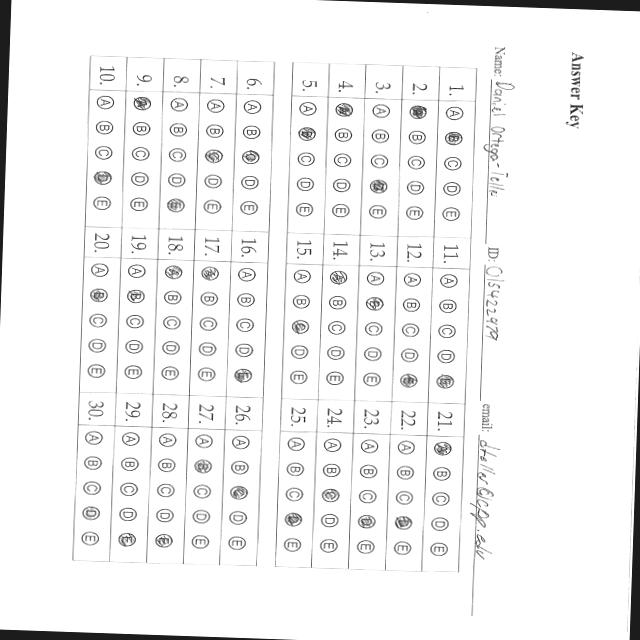 Answer Key
Name: Daniel Ortega-Tello ID: 015422979 email: dtello@cpp.edu
1. A B C D E 11. A B C D E 21. A B C D E
2. A B C D E 12. A B C D E 22. A B C D E
3. A B C D E 13. A B C D E 23. A B C D E
4. A B C D E 14. A B C D E 24. A B C D E
5. A B C D E 15. A B C D E 25. A B C D E
6. A B C D E 16. A B C D E 26. A B C D E
7. A B C D E 17. A B C D E 27. A B C D E
8. A B C D E 18. A B C D E 28. A B C D E
9. A B C D E 19. A B C D E 29. A B C D E
10. A B C D E 20. A B C D E 30. A B C D E